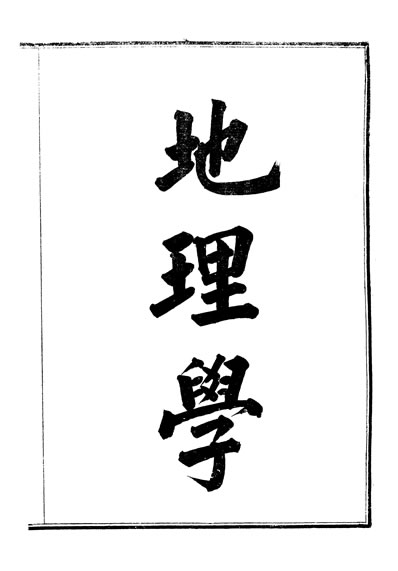 地理學